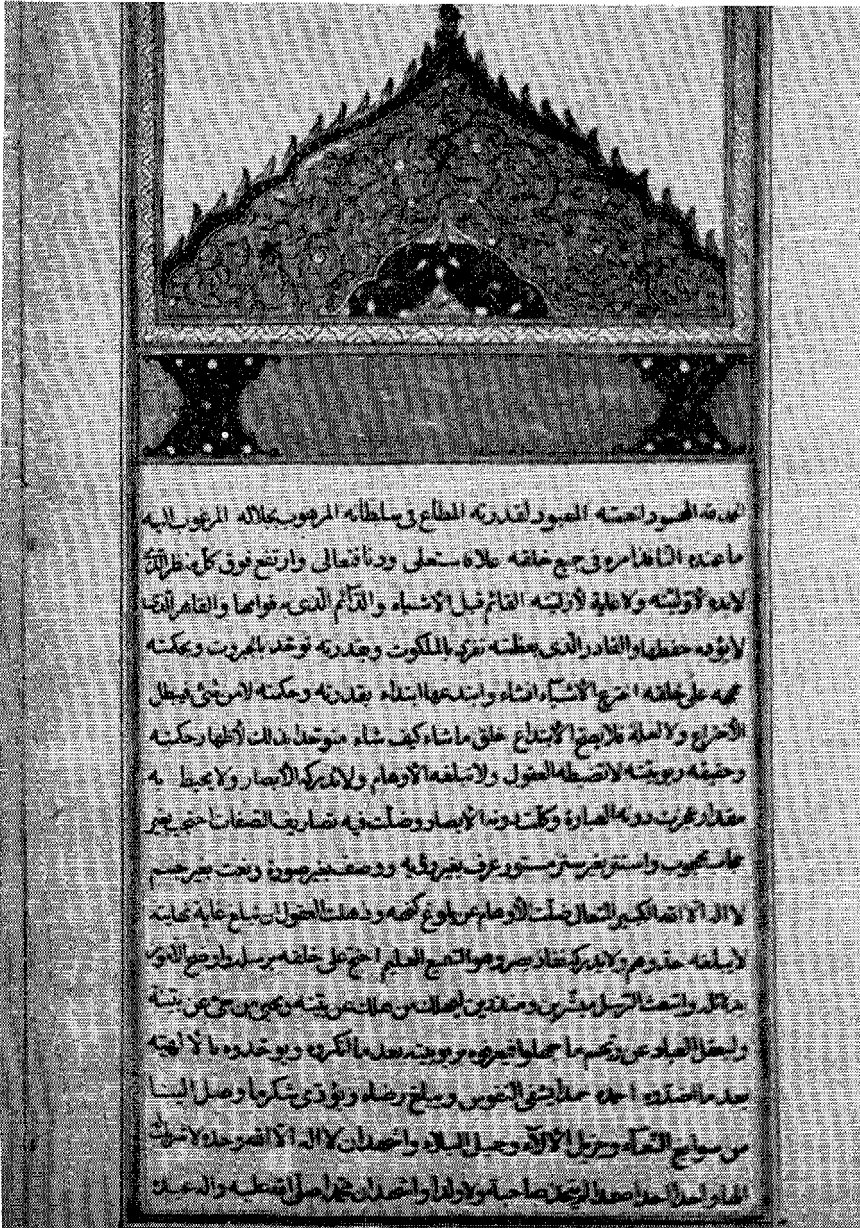 الحمد لله المحمود لنعمته المعبود لقدرته المطاع في سلطانه المرهوب بجلاله المرغوب اليه
ما عنده النافذ امره في جميع خلقه علا فاستعلى ودنا فتعالى وارتفع فوق كل منظر الذي
لا بدء لاوليته ولا غاية لأزليته القائم قبل الاشياء والدائم الذي به قوامها والقاهر الذي
لا يؤده حفظها والقادر الذي بعظمته تفرد بالملكوت وبقدرته توحد بالجبروت وبحكمته
على خلقه اخترع الأشياء انشاء وابتدعها ابتداء بقدرته وحكمته لا من شئ فيبطل
الأختراع ولا لعلة فلا يصح الابتداع خلق ما شاء كيف شاء متوحدا بذلك لأظهار حكمته
وحقيقه ربوبيته لا تضبطه العقول ولا تبلغه الأوهام ولا تدركه الأبصار ولا يحيط به
مقدار عجزت دونه العبارة وكلت دونه الأبصار وضلت فيه تصاريف الصفات احتجب بغير
حجاب محجوب واستتر بغير ستر مستور عرف بغير رؤية ووصف بغير صورة ونعت بغير جسم
لا اله الا الله الكبير المتعال ضلت الأوهام عن بلوغ كنهه وذهلت العقول ان تبلغ غاية نهايته
لا يبلغه حد وهم ولا يدركه نفاد بصر وهو السميع العليم احتج على خلقه برسله واوضح الامور
بدلائله وابتعث الرسل مبشرين ومنذرين ليهلك من هلك عن بينه ويحيى من حى عن بينة
وليعقل العباد عن ربهم ما جهلوا فيعرفوه بربوبيته بعد ما انكروه ويوحدوه بالالهية
بعد ما اضدوه احمده حمدا يشفى النفوس ويبلغ رضاه ويؤدى شكر ما وصل الينا
من سوابغ النعماء وجزيل الالاء وجميل البلاء واشهد ان لا اله الا الله وحده لا شريك
الها واحدا احدا صمدا لم يتخذ صاحبة ولا ولدا واشهد ان محمدا صلى الله عليه واله عبد